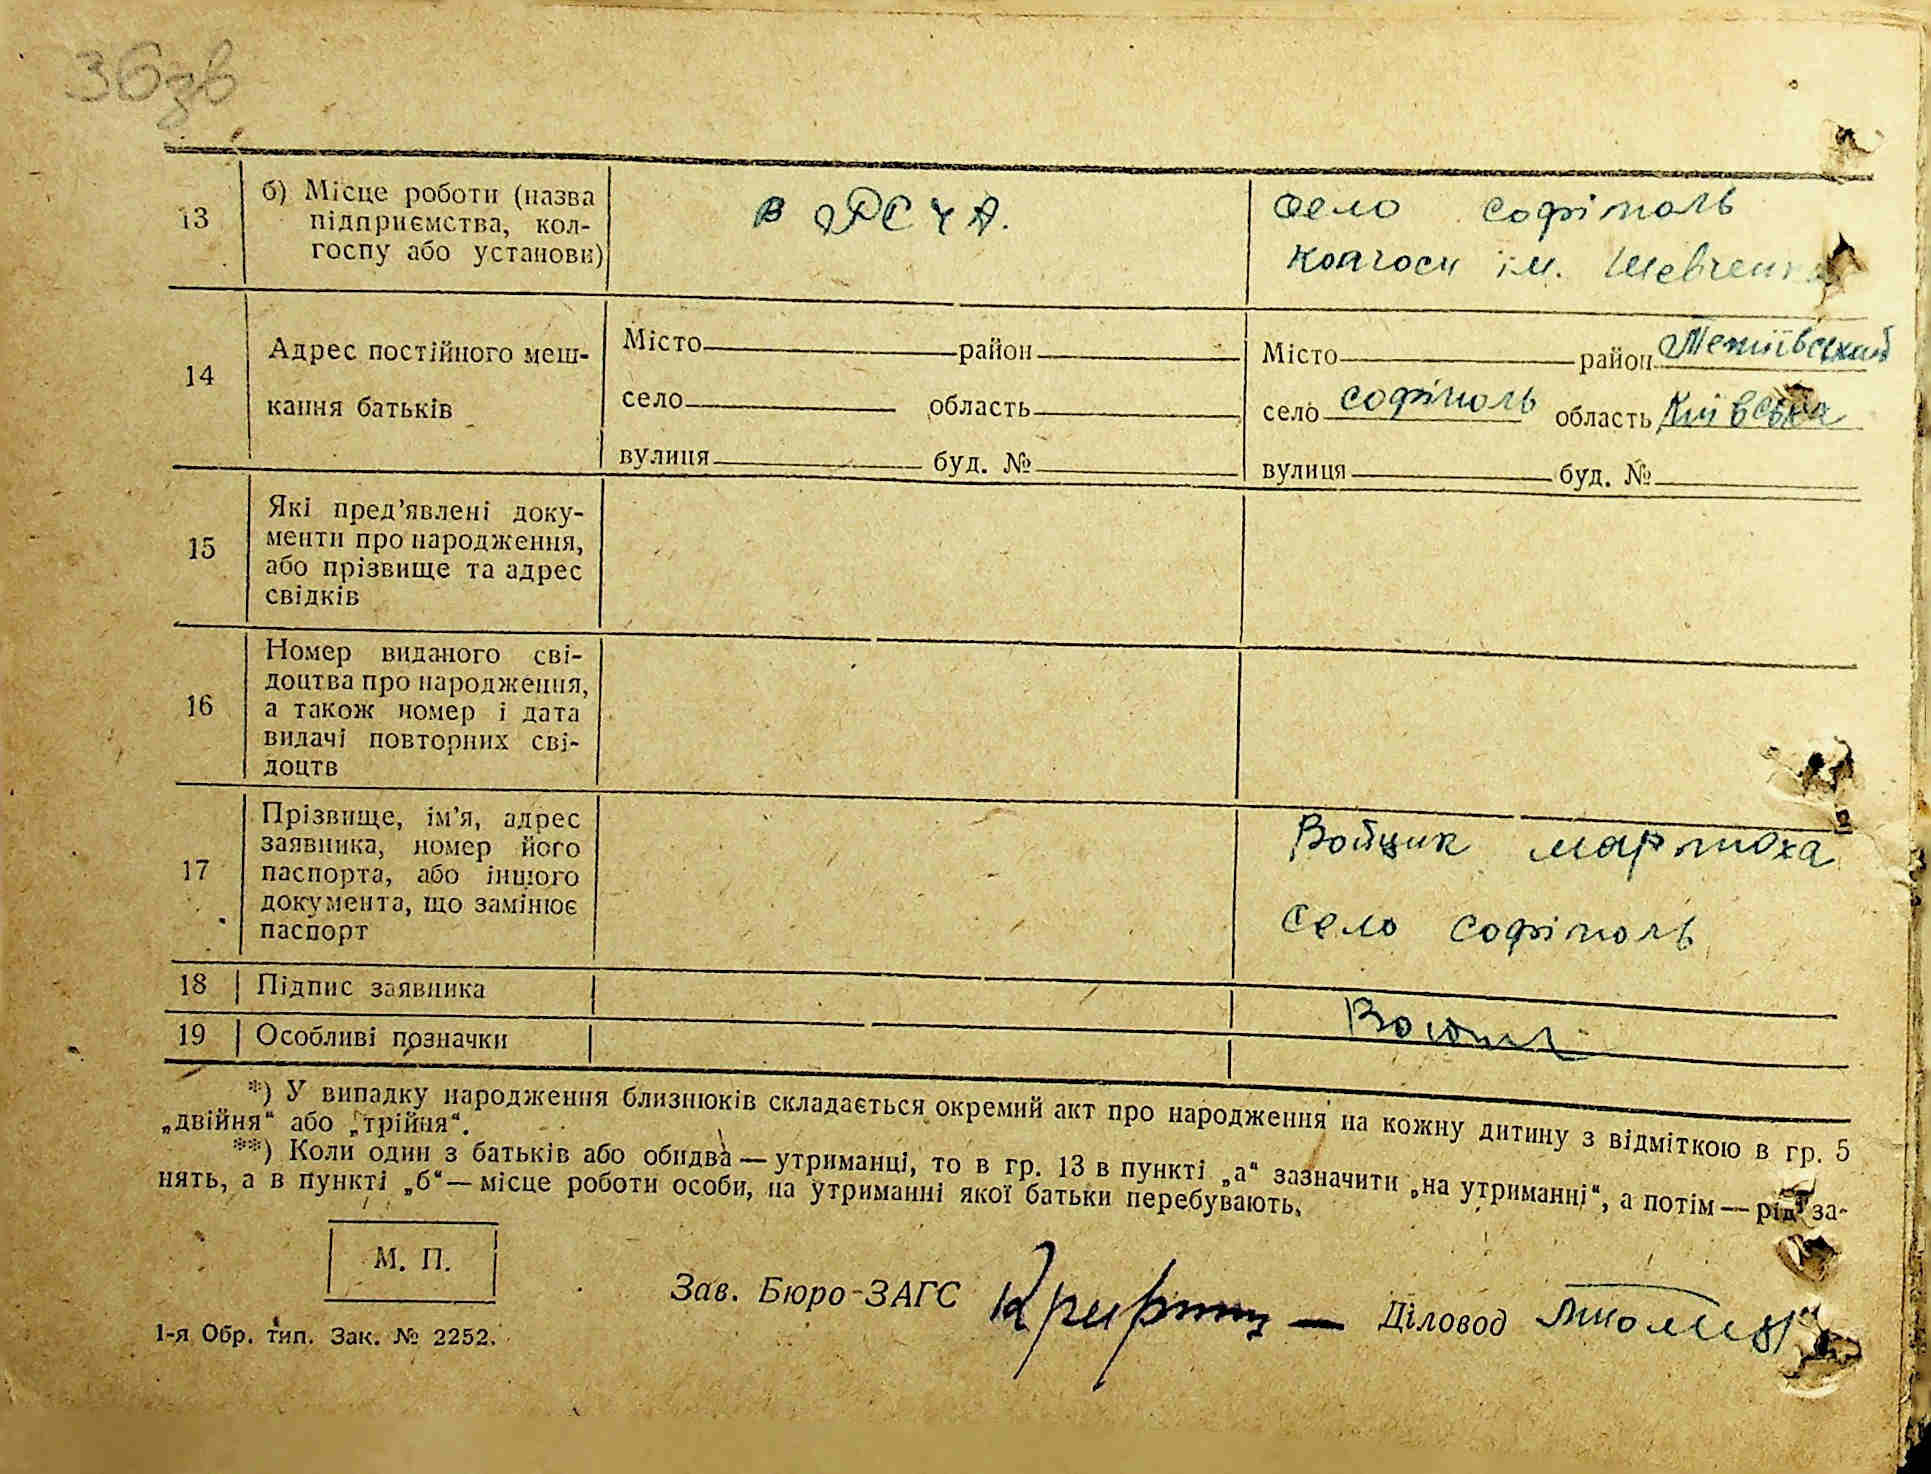 36зв
13
б) Місце роботи (назва
підприємства, кол-
госпу або установи)
в РСЧА.
село софіполь
колгосп ім. Шевченка
14
Адрес постійного меш-
кання батьків
Місто район
село область
вулиця буд. №
Місто район Тетіївський
село софіполь область Київська
вулиця буд. №
15
Які пред'явлені доку-
менти про народження,
або прізвище та адрес
свідків
16
Номер виданого сві-
доцтва про народження,
а також номер і дата
видачі повторних сві-
доцтв
17
Прізвище, ім'я, адрес
заявника, номер його
паспорта, або іншого
документа, що замінює
паспорт
Войцик мартоха
село софіполь
18 Підпис заявника
19 Особливі позначки
*) У випадку народження близнюків складається окремий акт про народження на кожну дитину з відміткою в гр. 5
„двійня“ або „трійня“.
**) Коли один з батьків або обидва — утриманці, то в гр. 13 в пункті „а“ зазначити „на утриманні“, а потім — рід за-
нять, а в пункті „б“ — місце роботи особи, на утриманні якої батьки перебувають.
М. П.
Зав. Бюро-ЗАГС
Діловод
1-я Обр. тип. Зак. № 2252.